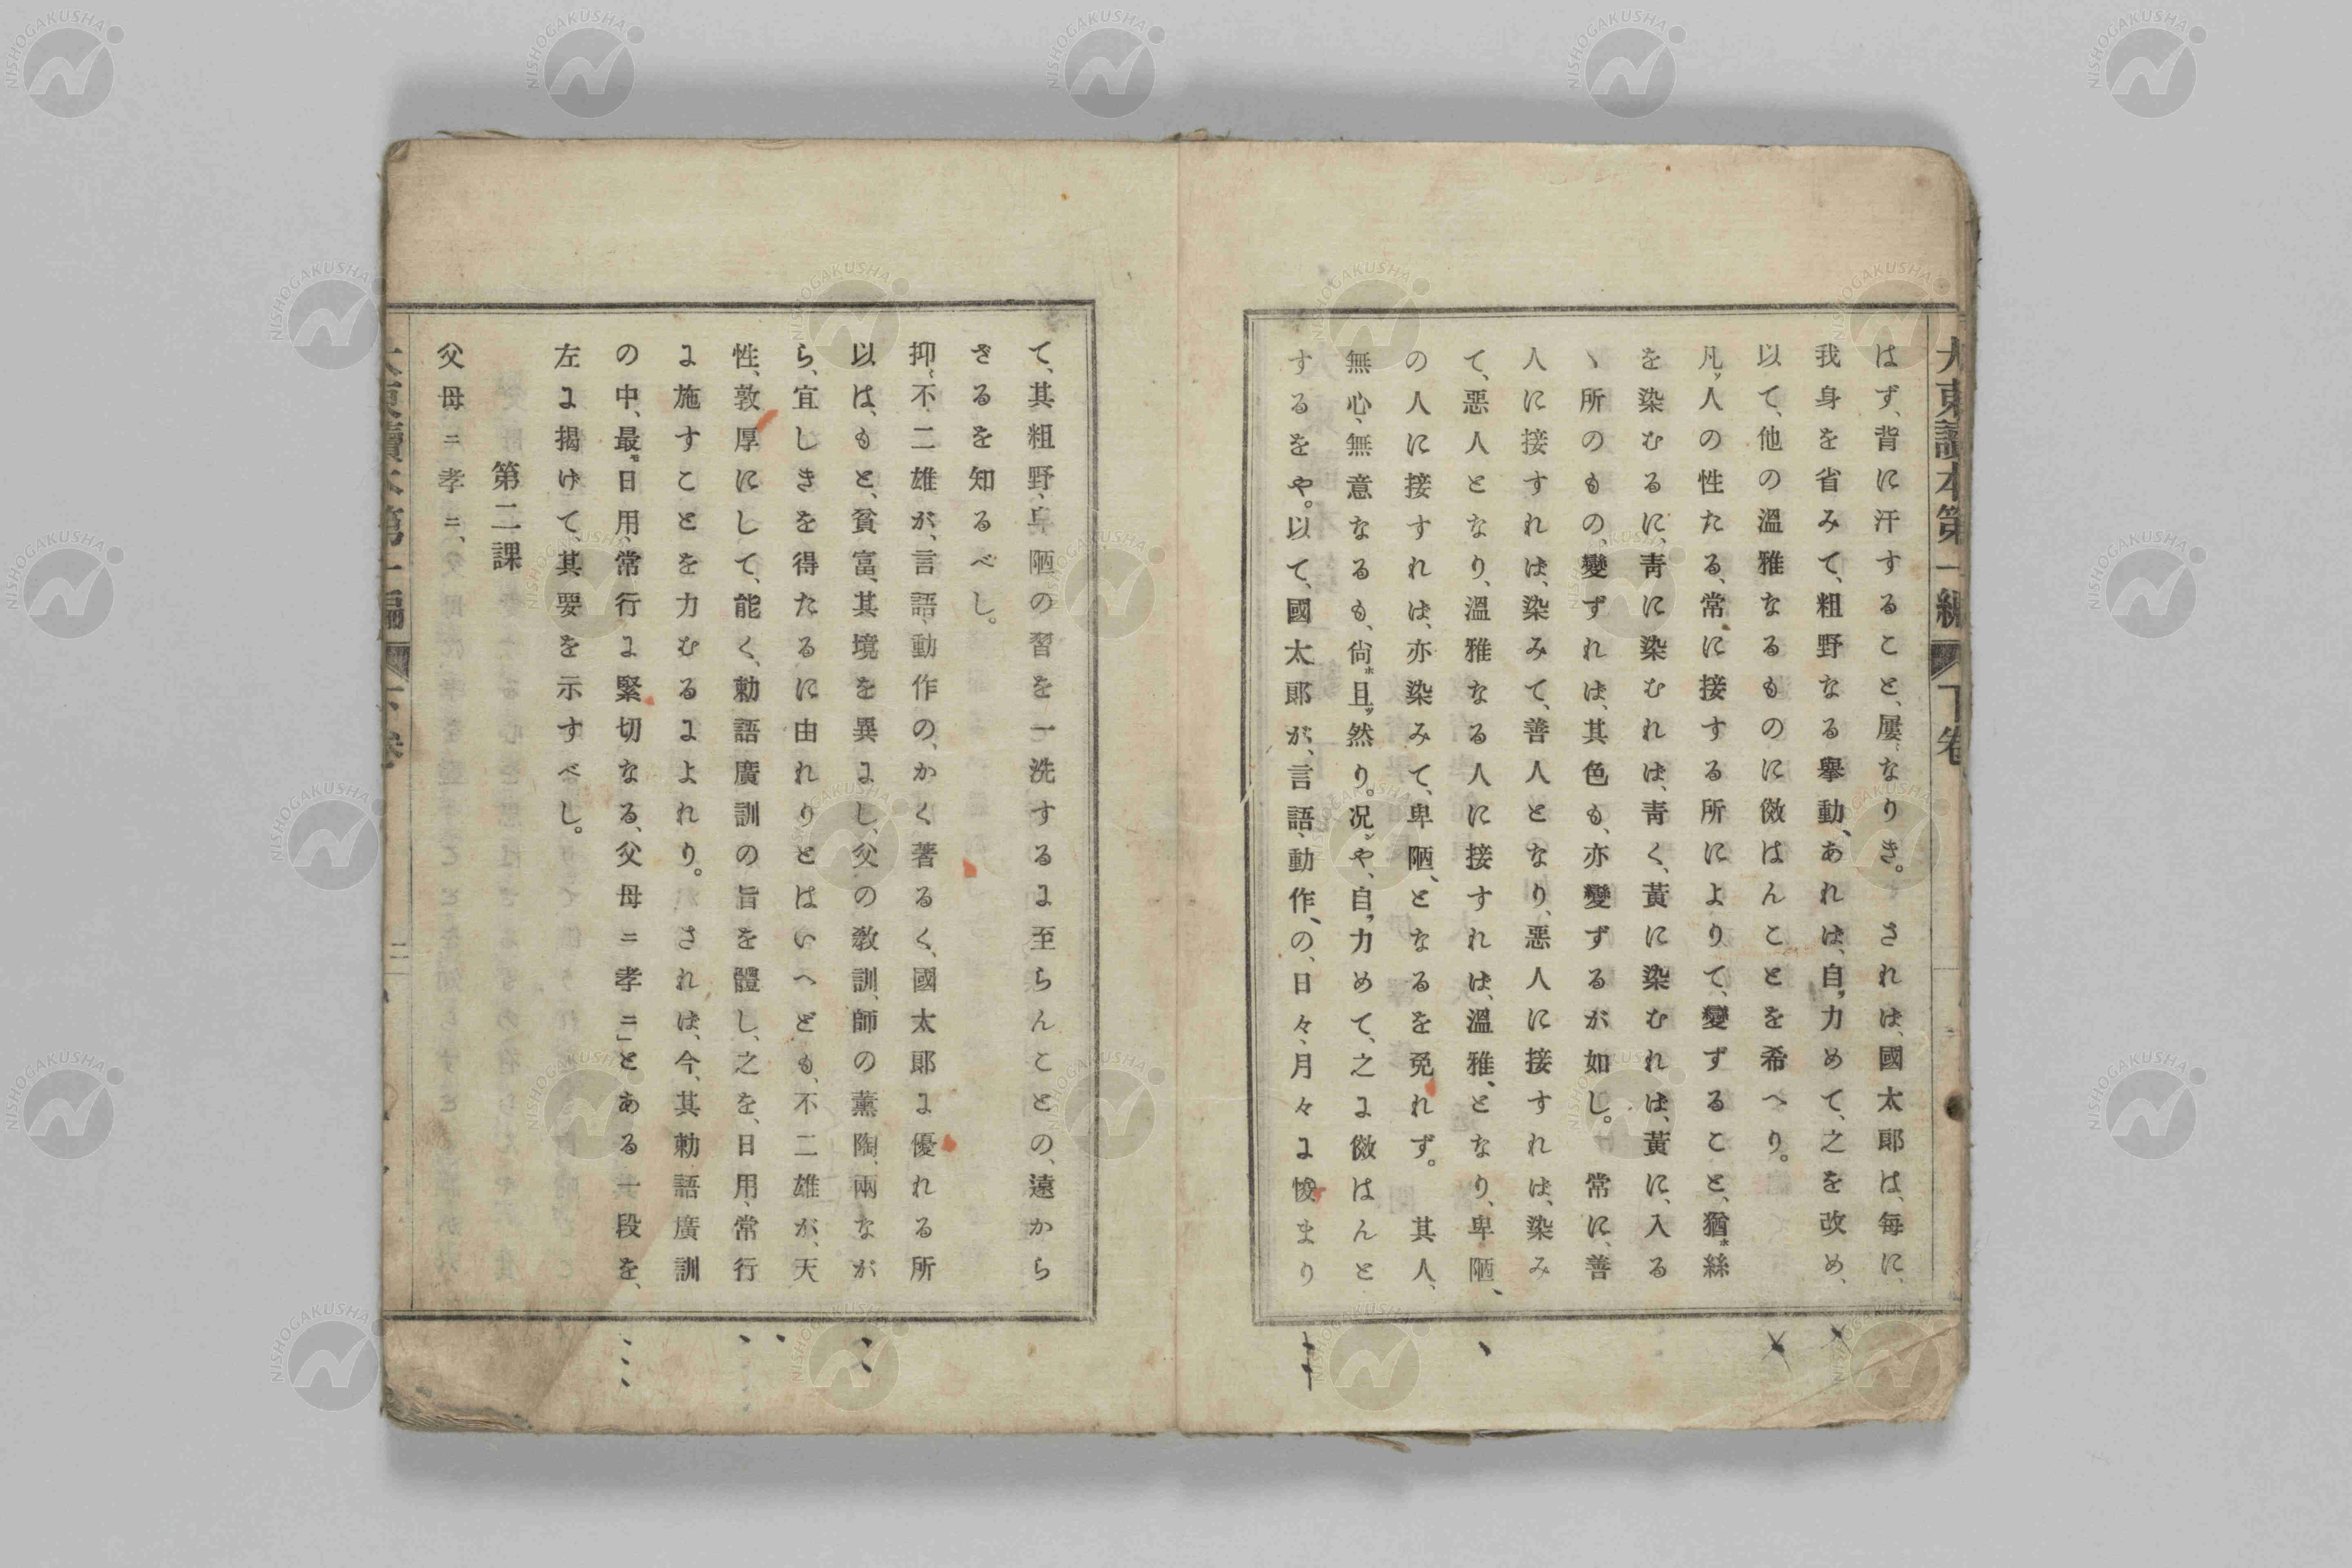 大東讀本第一編 下卷
はず、背に汗すること、屢なりき。 されは、國太郎は、毎に、
我身を省みて、粗野なる擧動、あれは、自力めて、之を改め、
以て、他の溫雅なるものに傚はんことを希へり。
凡人の性たる、常に接する所によりて、變ずること、猶絲
を染むるに、靑に染むれは、靑く、黃に染むれは、黃に、入る
ヽ所のもの、變ずれは、其色も、亦變ずるが如し。 常に、善
人に接すれは、染みて、善人となり、惡人に接すれは、染み
て、惡人となり、溫雅なる人に接すれは、溫雅、となり、卑陋、
の人に接すれは、亦染みて、卑陋、となるを免れず。 其人、
無心、無意なるも、尙且然り。况や、自力めて、之に傚はんと
するをや。以て、國太郎が、言語、動作、の、日々、月々に悛まり
て、其粗野、卑陋の習を一洗するに至らんことの、遠から
ざるを知るべし。
抑、不二雄が、言語、動作の、かく著るく、國太郎に優れる所
以は、もと、貧富、其境を異にし、父の敎訓、師の薰陶、兩なが
ら、宜しきを得たるに由れりとはいへども、不二雄が、天
性、敦厚にして、能く、勅語廣訓の旨を體し、之を、日用、常行
に施すことを力むるによれり。 されは、今、其勅語廣訓
の中、最日用、常行に緊切なる、父母ニ孝ニ」とある一段を、
左に揭けて、其要を示すべし。
第二課
父母ニ孝ニ、